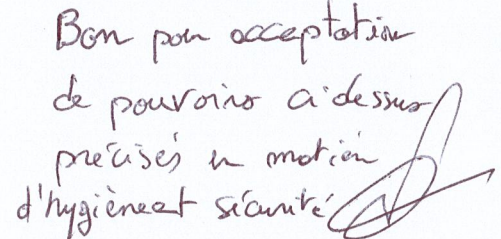 Bon pour acceptation
de pouvoirs ci-dessus
précisés en matière
d'hygiène et sécurité